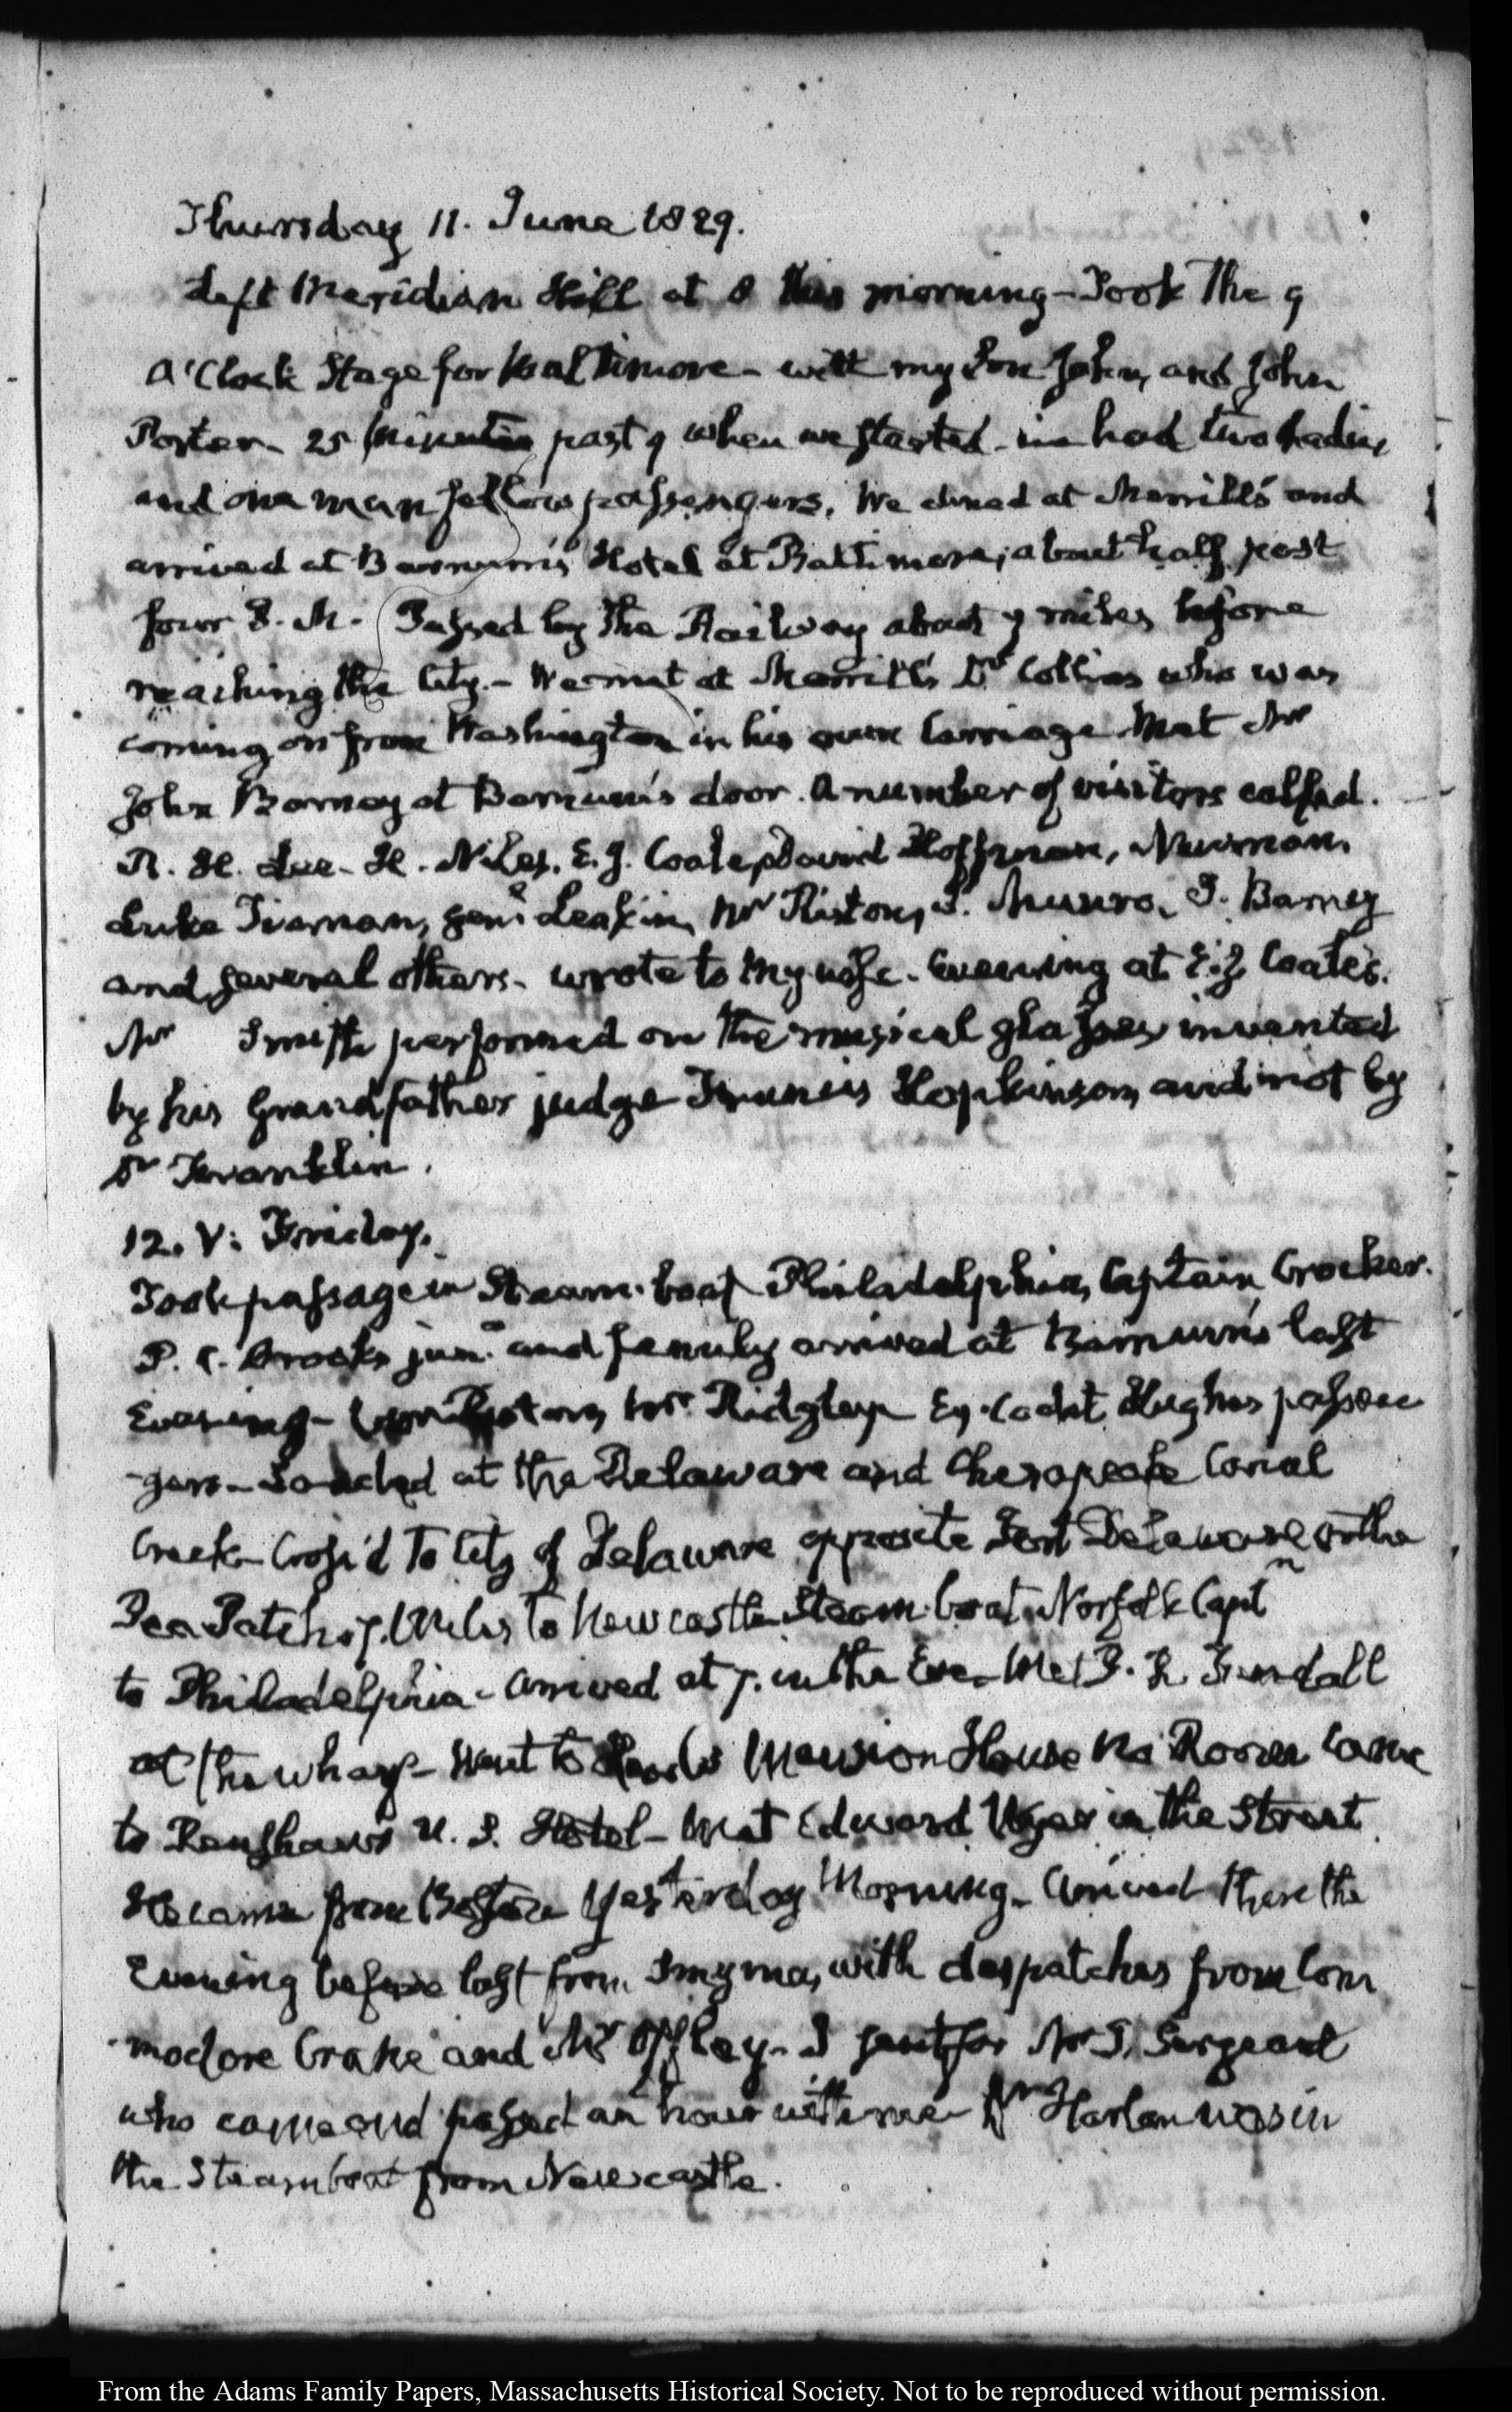 Thursday 11. June 1829.
Left Meridian Hill at 8 this morning - Took the 9
O'Clock Stage for Baltimore - with my Son John, and John
Foster - 25 Minutes past 9 when we started - we had two Ladies
and one man fellow passengers. We dined at Merrill's and
arrived at Barnum's Hotel at Baltimore, about half past
four P. M. Passed by the Railway about 7 miles before
reaching the City. - We met at Merrill's Dr Collins who was
coming on from Washington in his own Carriage. Met Mr
John Barney at Barnum's door. A number of visitors called.
R. H. Lee - H. Niles, E. J. Coale, David Hoffman, Newman,
Luke Tiernan, Genl Leakin, Mr Riston, I. Munro, J. Barney
and several others - wrote to my wife. Evening at E. J. Coale's.
Mr Smith performed on the musical glasses invented
by his Grandfather judge Francis Hopkinson, and not by
Dr Franklin.
12. V: Friday.
Took passage in Steam-boat Philadelphia, Captain Crocker.
P. C. Brooks junr. and family arrived at Barnum's last
Evening - Mr. Ridgley Ex-Cadet Hughes passen
-gers - Landed at the Delaware and Chesapeake Canal
Creek - Cross'd to City of Delaware opposite Fort Delaware on the
Pea Patch. 7. Miles to Newcastle Steam-boat Norfolk Captn
to Philadelphia - arrived at 7. in the Eve - Met T. R. Tunstall
at the wharf - Went to Head's Mansion House No Room Came
to Renshaw's U. S. Hotel - Met Edward Wyer in the Street
He came from Boston Yesterday Morning - Arrived there the
Evening before last from Smyrna, with despatches from Com
-modore Crane and Mr Offley. I sent for Mr J. Sergeant
who came and passed an hour with me - Dr Harlan was in
the Steamboat from Newcastle.
From the Adams Family Papers, Massachusetts Historical Society. Not to be reproduced without permission.